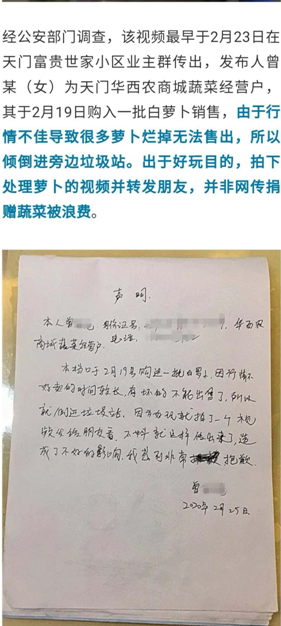 经公安部门调查，该视频最早于2月23日在
天门富贵世家小区业主群传出，发布人曾
某（女）为天门华西农商城蔬菜经营户，
其于2月19日购入一批白萝卜销售，由于行
情不佳导致很多萝卜烂掉无法售出，所以
倾倒进旁边垃圾站。出于好玩目的，拍下
处理萝卜的视频并转发朋友，并非网传捐
赠蔬菜被浪费。
声明
本人曾 身份证号 华西农
商城蔬菜经营户。
本档口于2月19号购进一批白萝卜，因行情不
好卖的时间较长，有坏的不能出售了，所以
就倒进垃圾站，因为好玩就拍了一个视
频发给朋友看，不料就这样传出来了，造
成了不好的影响，我感到非常 抱歉
曾
2020年2月25日